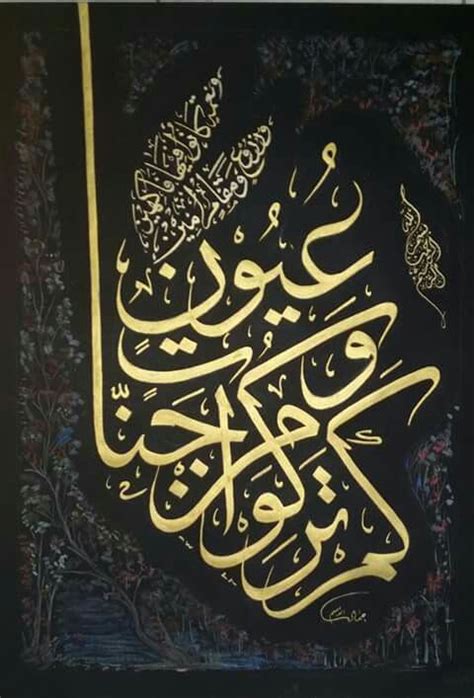 كم تركوا من
جنّاتٍ وَ
عُيُون
وزروع ومقام
ونعمة كانوا فيها فاكهين